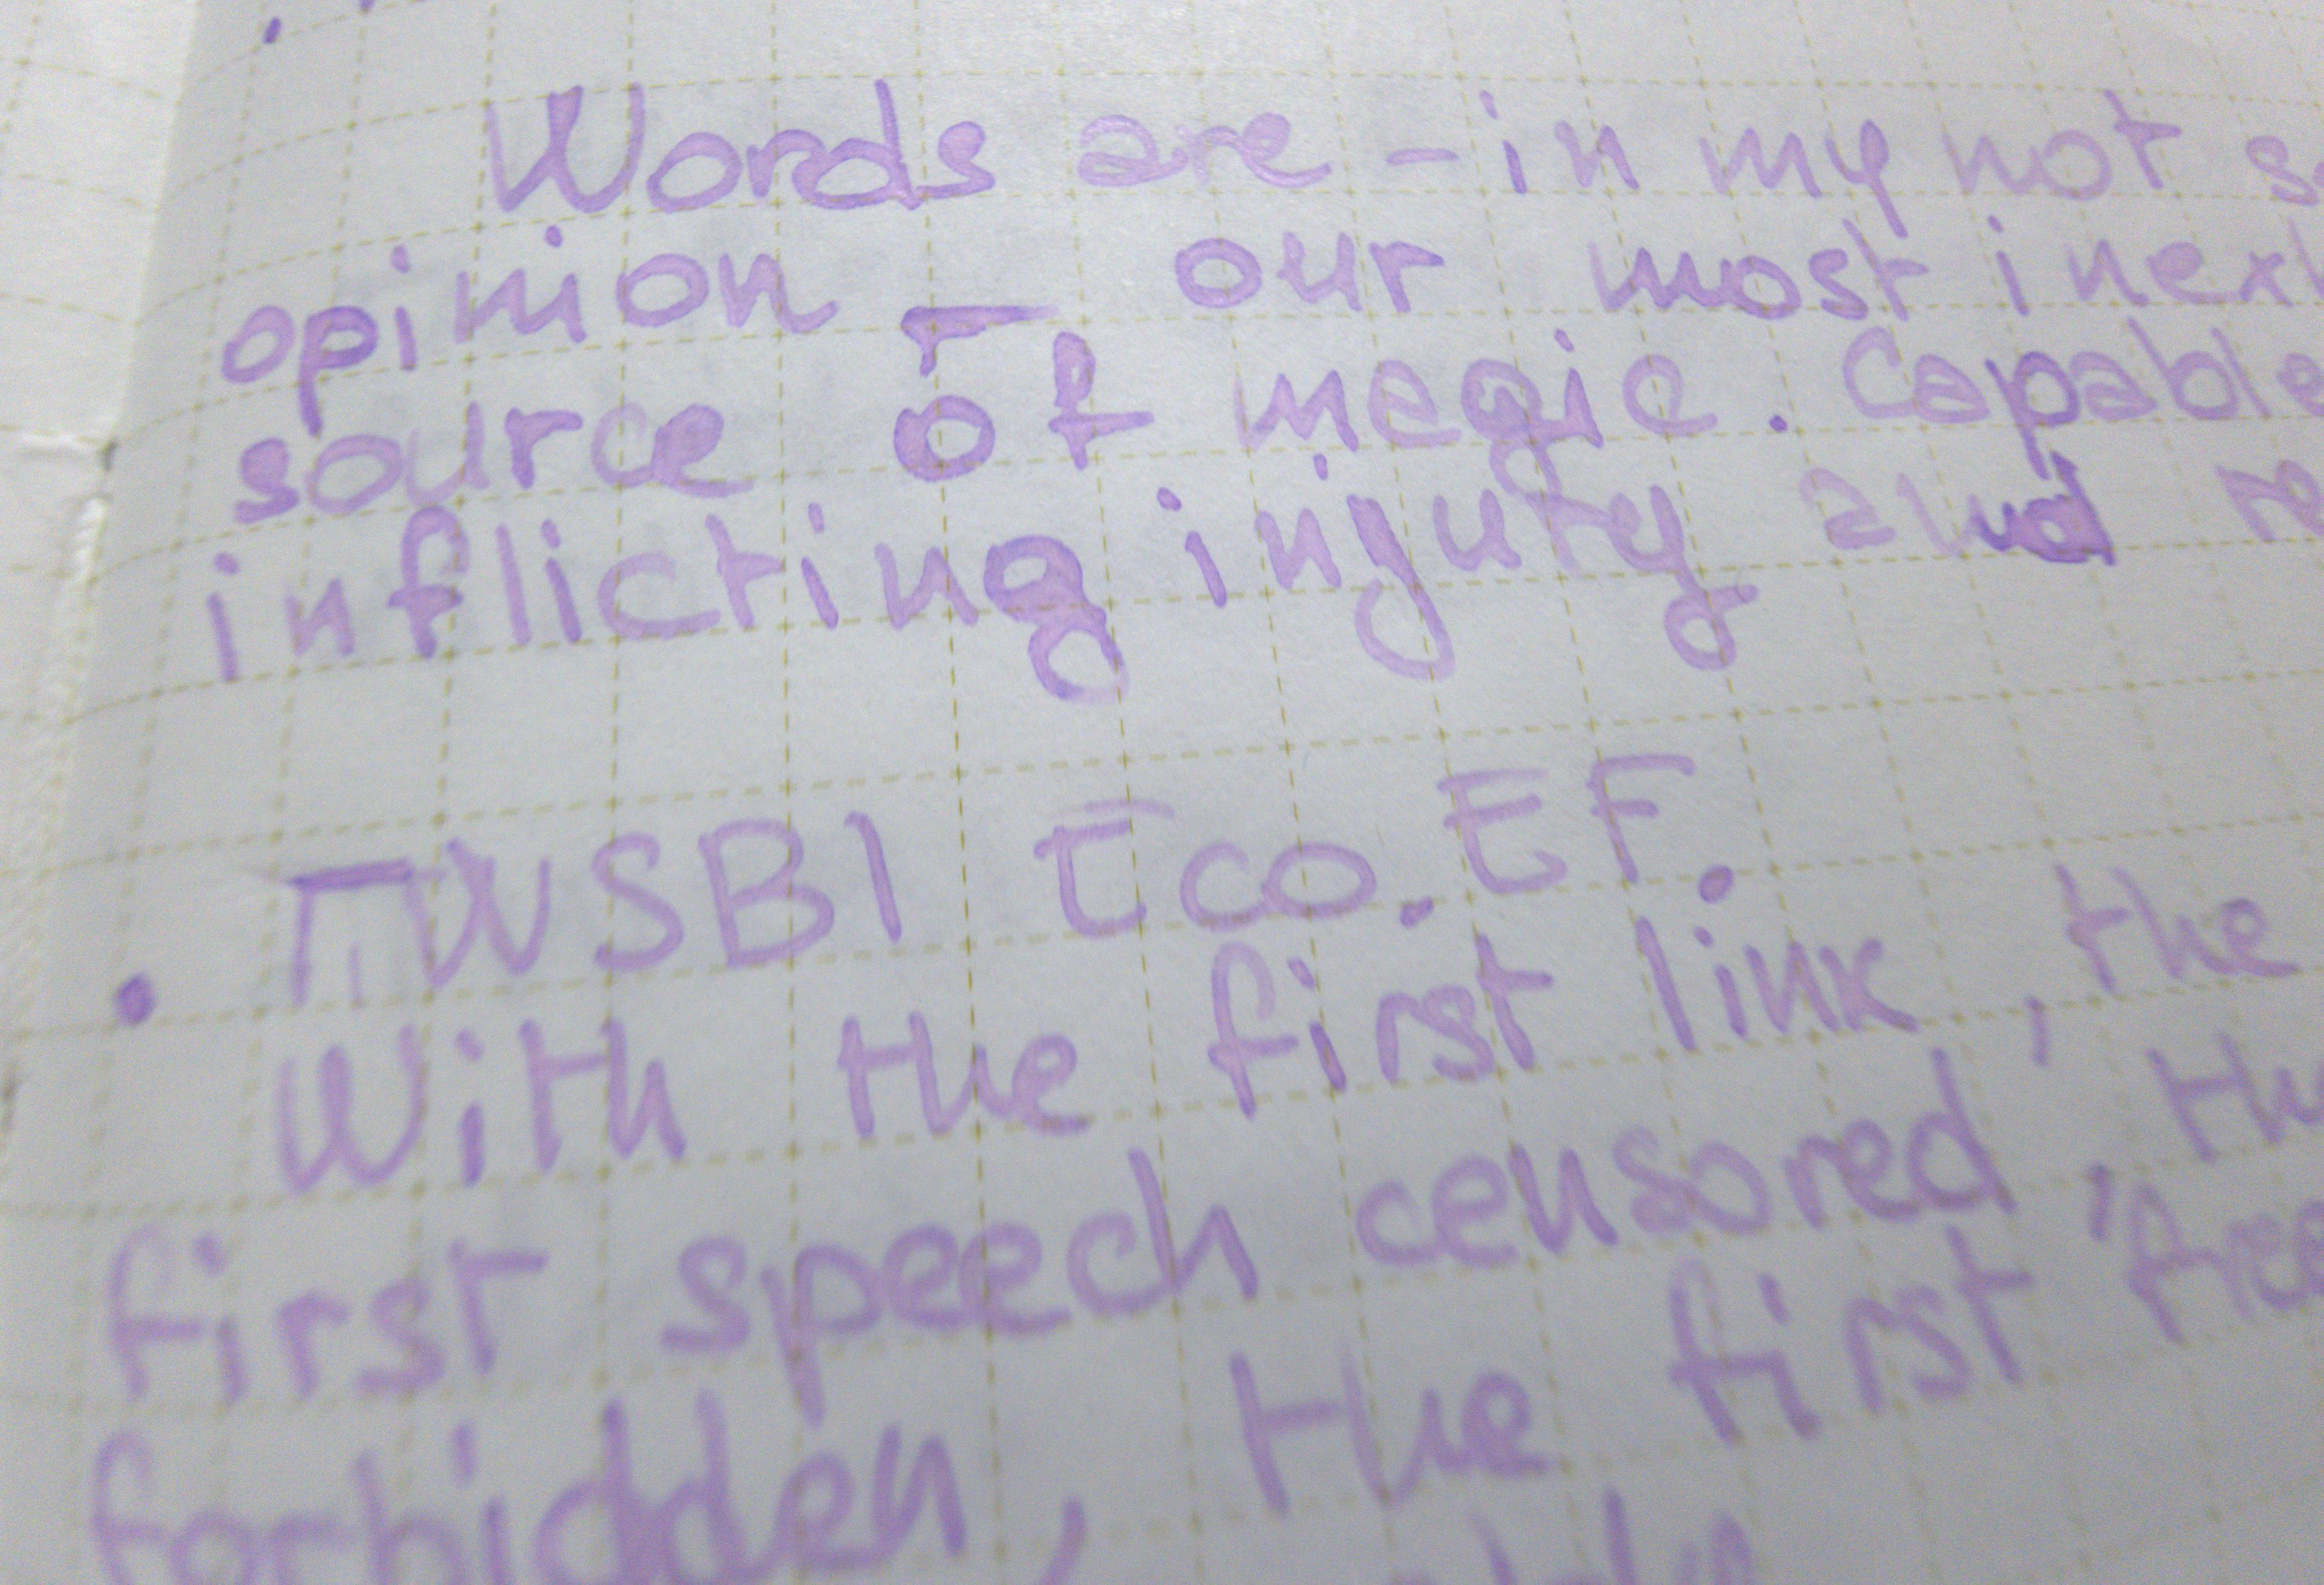 Words are - in my not so
opinion - our most inext
source of megic. Capable
inflicting injury and re
. TWSBI Eco. EF.
With the first link, the
first speech censored, the
forbidden, the first free